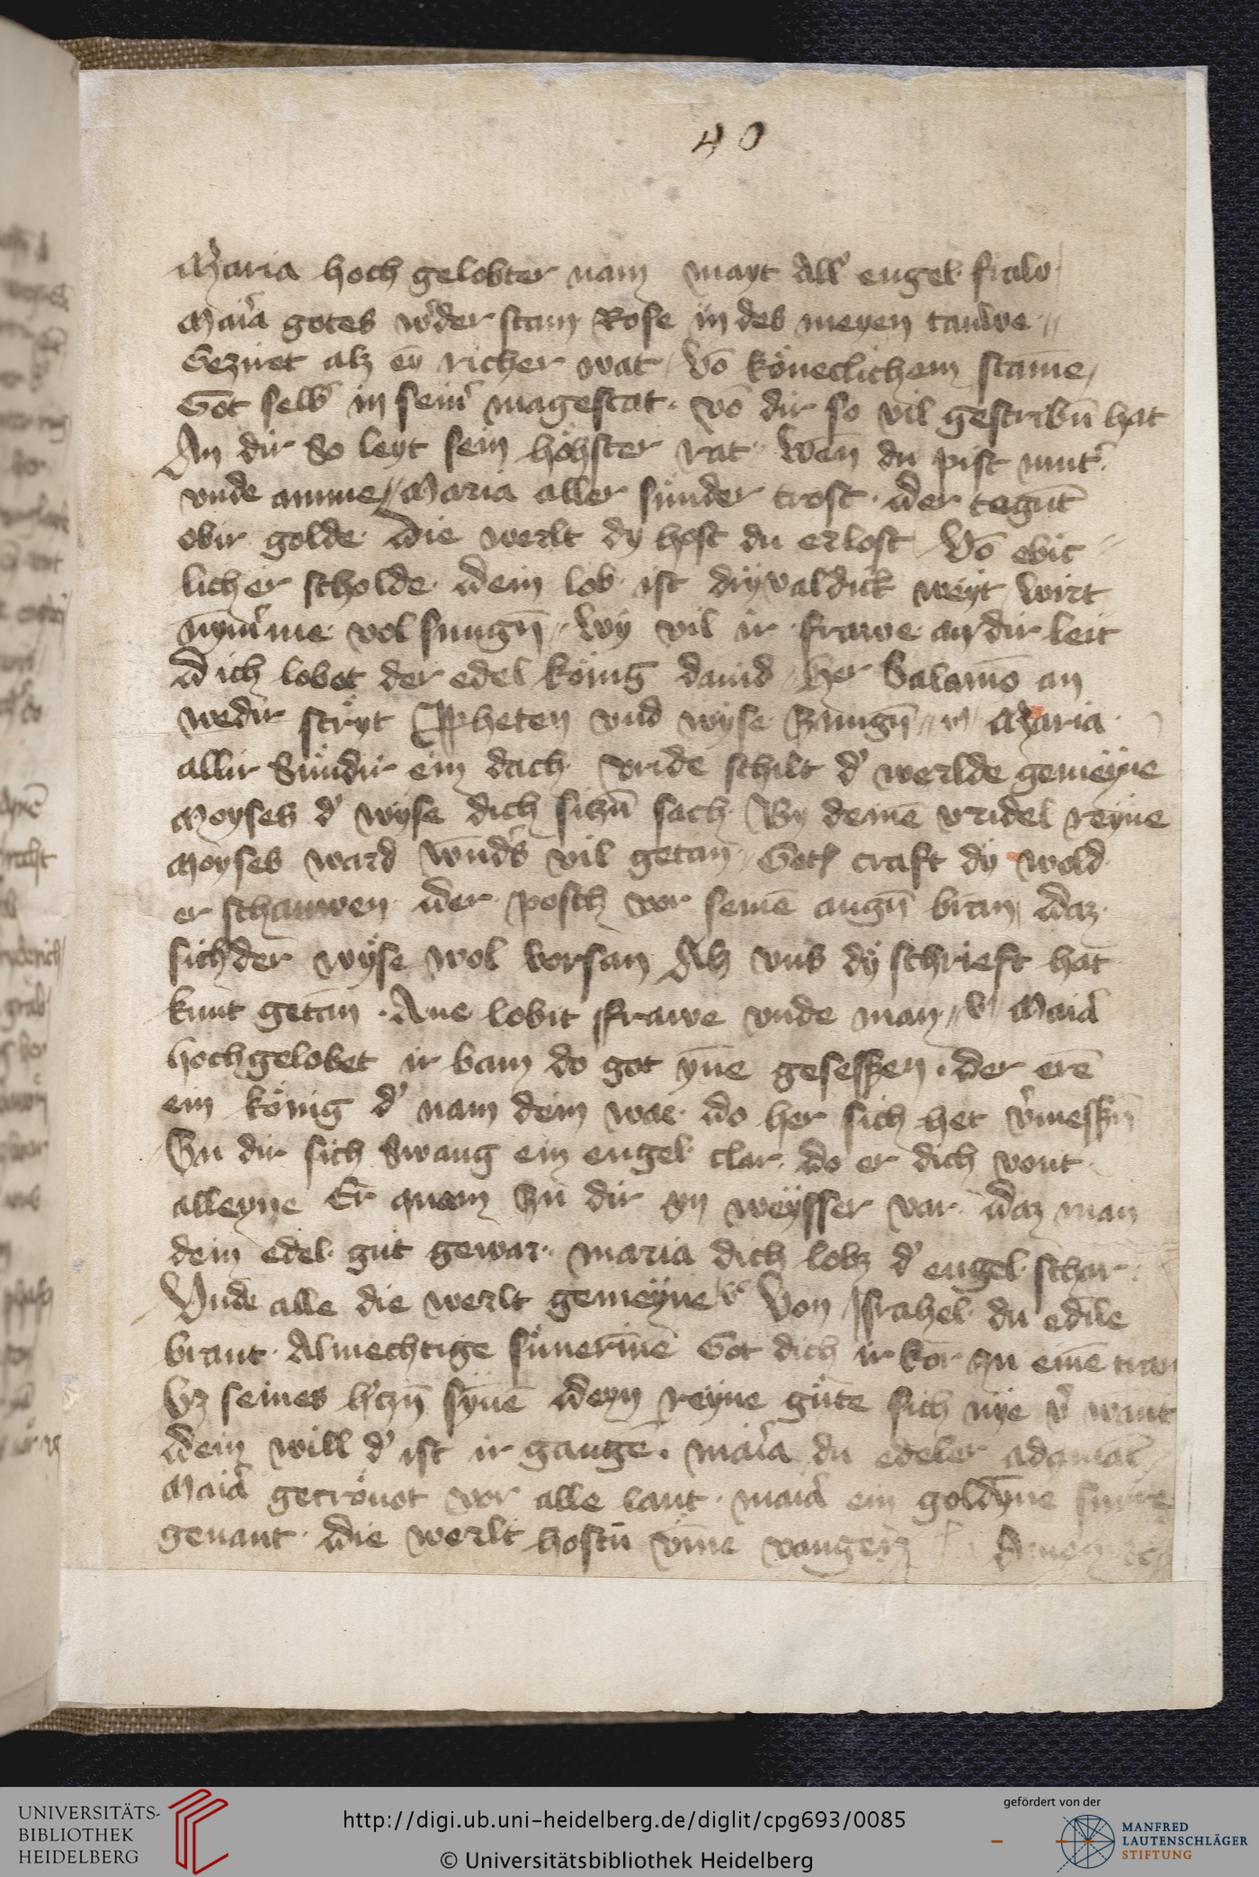 40
Maria hoch gelobter nam mayt all' engel fraw
Mai'a gotes w'der stam Rose in des meyen tauwe
Geziret alz eȳ richer wat Vō köneclichem stame
Got selb' in sein' magestat vō dir so vil gescribn̄ hat
An dir so leyt sein höhster rat Wen̄ du pist mut'
vnde amme Maria aller sunder trost der tegūt
obir golde Die werlt dy host du erlost Vō ebic
licher scholde Dein lob ist weyt wirt
nym'me vol sungn̄ Wy vil ir frawe an dir leit
Dich lobet der edel könig dauid her Salamō an
wedir streyt Ppheten vnd wyse zungn̄ Maria
allir Sundir ein dach vride schilt d' werlde gemeyne
Moyses d' wyse dich sizn̄ sach By deine vridel reyne
Moyses ward wnd's vil getan Gotz craft dy wold
er schauwen Der posch vor seinē augn̄ bran Daz
sich der wyse wol vorsan Alz vns dy schrieft hat
kunt getan Aue lobit frawe vnde man v' Mai'a
hochgelobet ir bam do got yn̄e gesessen der erē
ein könig d' nam dein war do her sich het v'messn̄
Zu dir sich Swang ein engel clar do er dich vont
alleyne Er quam zu dir yn weysser var Daz man
dein edel gut gewar maria dich lobz d' engel schar
Vnde alle die werlt gemeyne v' Von Israhel du edile
braut Almechtige Got dich ir kor zu eine trau
Vz seines h'czn̄ synē Deyn reyne güte sich nye v' want
Dein will d' ist ir gange mai'a du edeler adamāt
Mai'a gecrönot vor alle lant mai'a ein goldyne
genant Die werlt hostu vangen Amen
UNIVERSITÄTS-
BIBLIOTHEK
HEIDELBERG
http://digi.ub.uni-heidelberg.de/diglit/cpg693/0085
© Universitätsbibliothek Heidelberg
gefördert von der
MANFRED
LAUTENSCHLÄGER
STIFTUNG